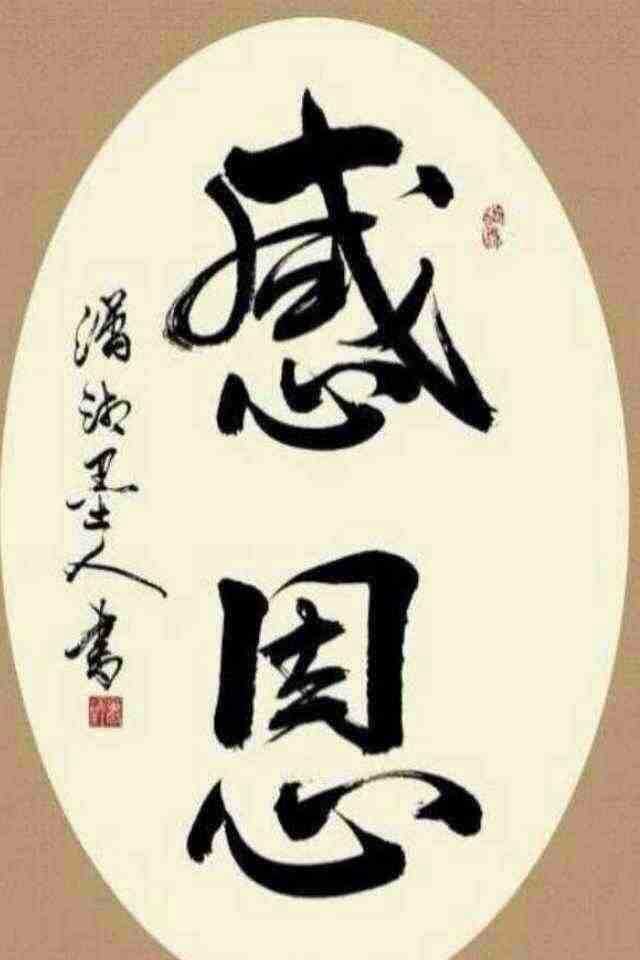 感恩
潇湘墨人书